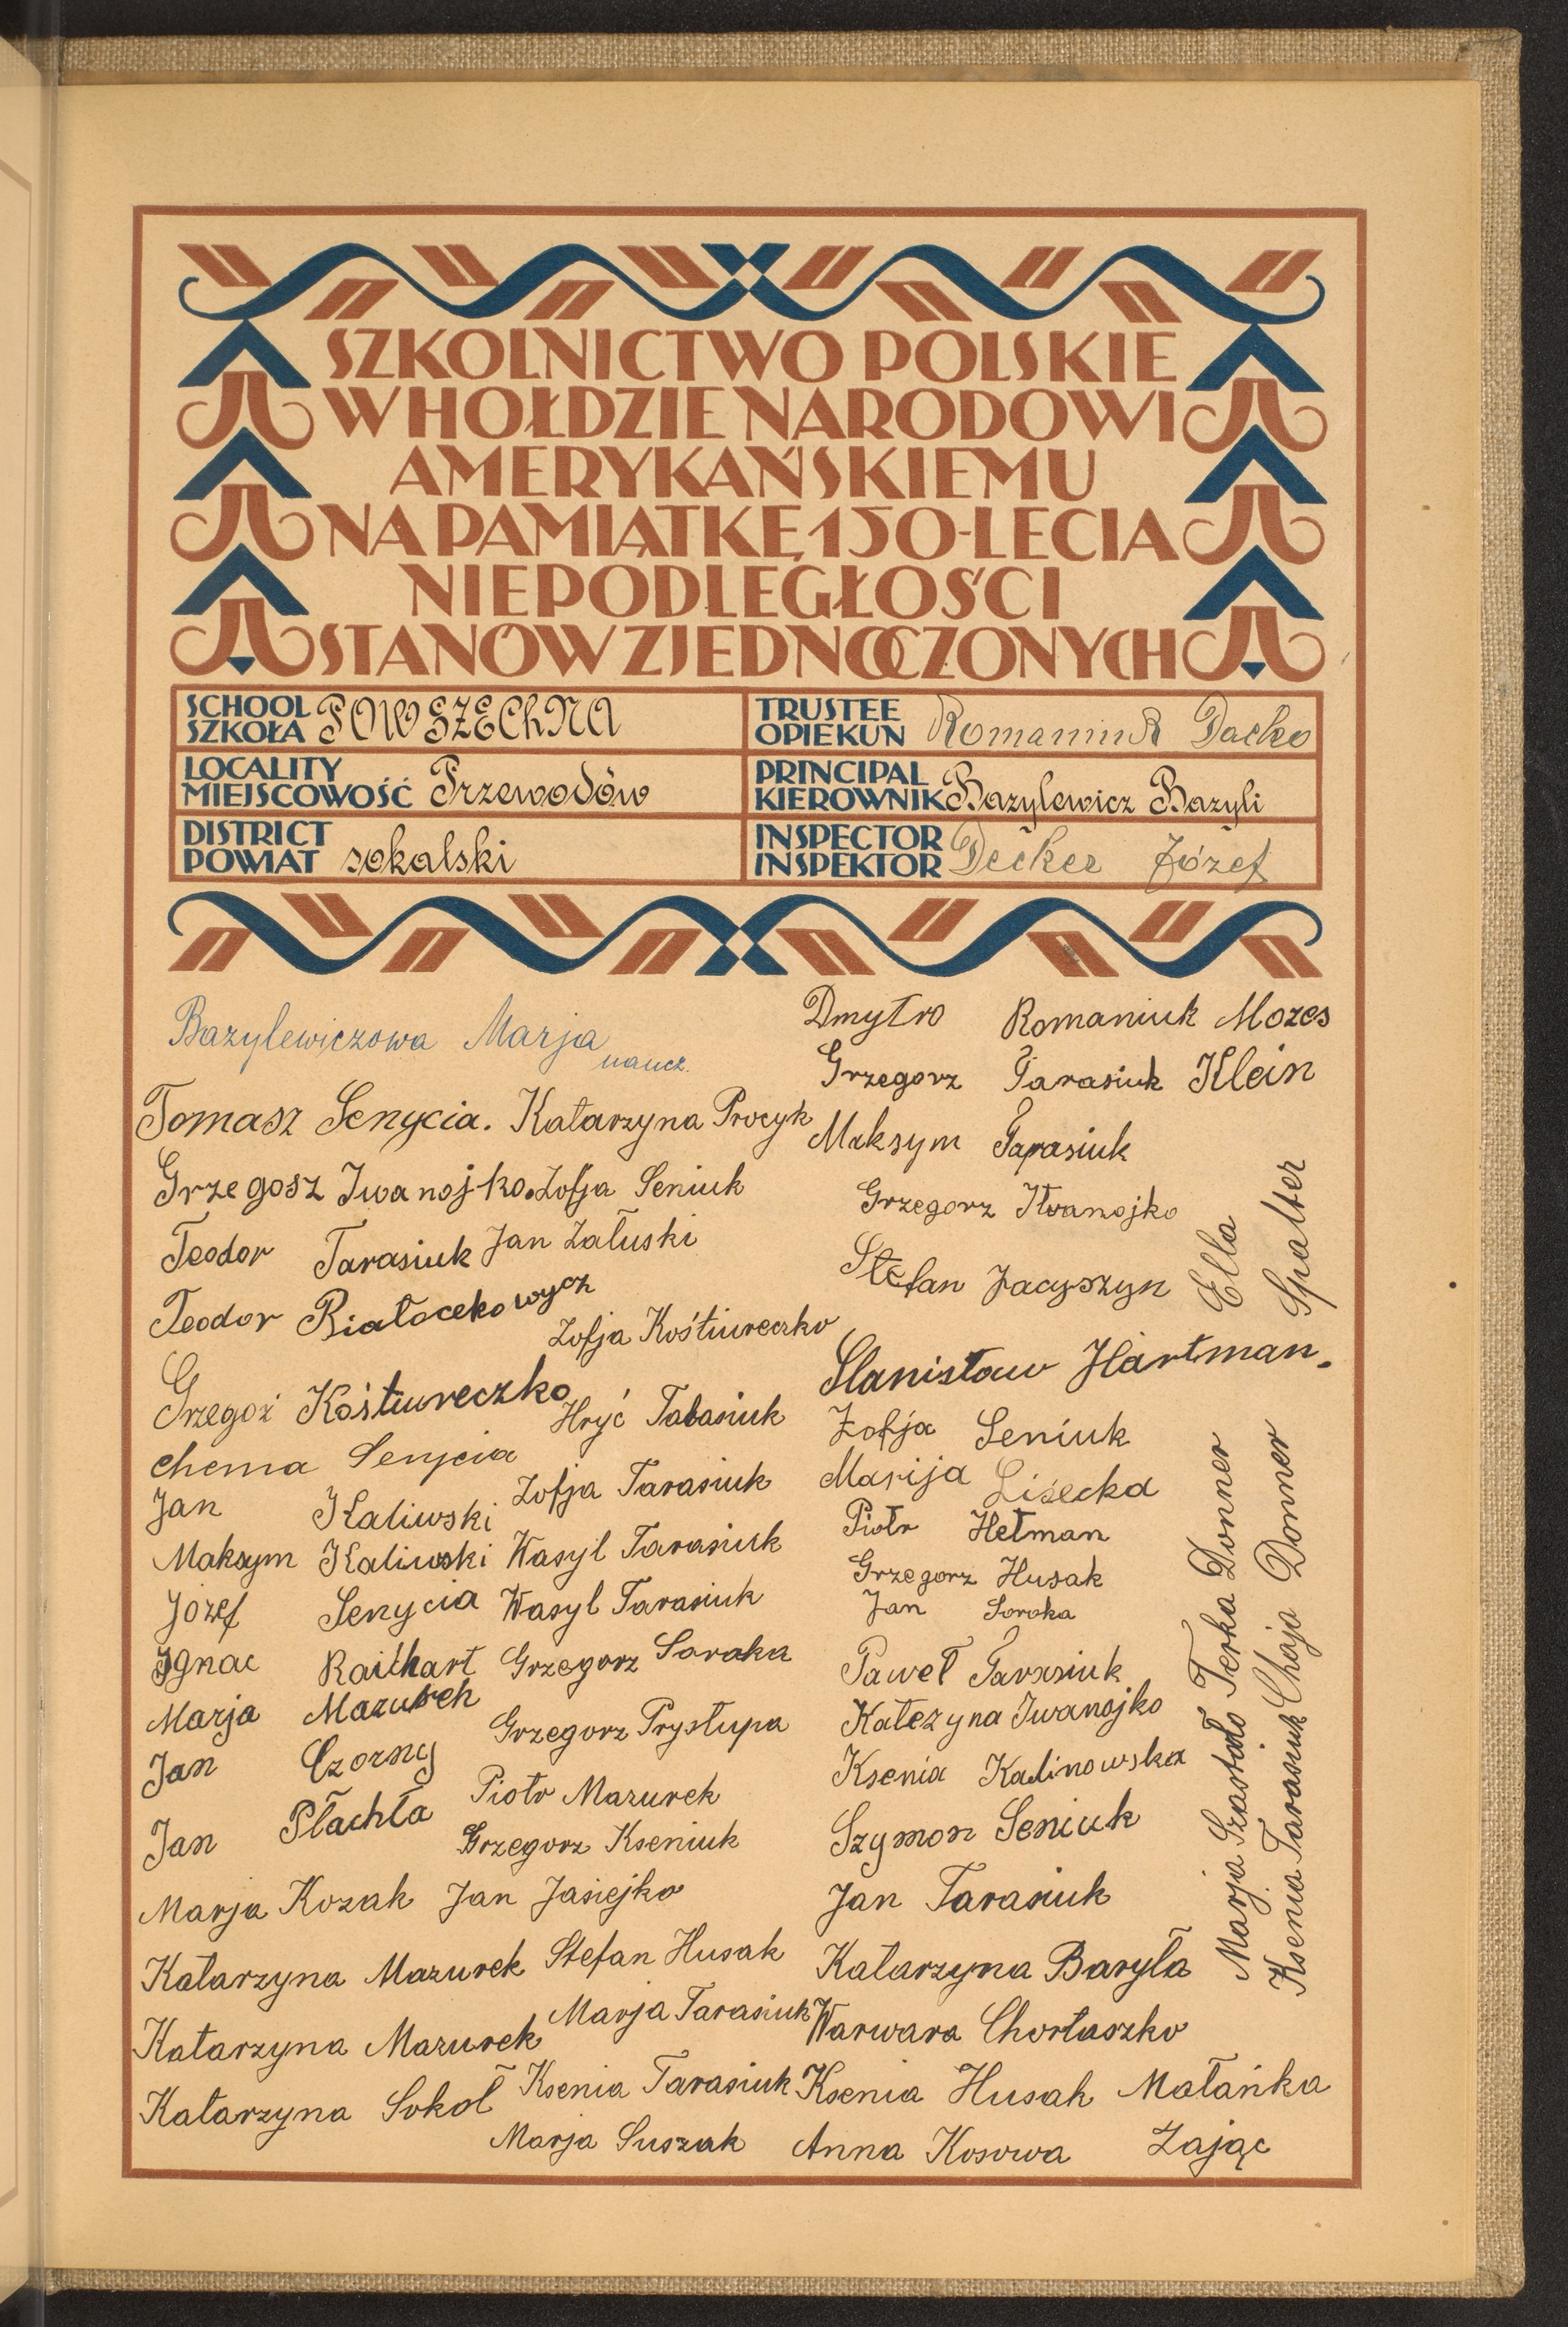 SZKOLNICTWO POLSKIE
W HOŁDZIE NARODOWI
AMERYKAŃSKIEMU
NA PAMIĄTKĘ 150-LECIA
NIEPODLEGŁOŚCI
STANÓW ZJEDNOCZONYCH
SCHOOL
SZKOŁA POWSZEChNA
TRUSTEE
OPIEKUN Romaniuk Dacko
LOCALITY
MIEJSCOWOŚĆ Przewodów
PRINCIPAL
KIEROWNIK Bazylewicz Bazyli
DISTRICT
POWIAT sokalski
INSPECTOR
INSPEKTOR Decker Józef
Bazylewiczowa Marja
naucz.
Tomasz Senycia. Katarzyna Procyk
Grzegosz Iwanojko. Zofja Seniuk
Teodor Tarasiuk Jan Załuski
Teodor Białocekowych
Zofja Kośtiureczko
Grzegoż Kośtiureczko
Hryć Tarasiuk
Chema Senycia
Zofja Tarasiuk
Jan Kaliwski
Maksym Kaliwski Wasyl Tarasiuk
Józef Senycia Wasyl Tarasiuk
Ignac Raithart Grzegorz Soroka
Marja Mazurek
Grzegorz Prystupa
Jan Czorny
Piotr Mazurek
Jan Płachta
Grzegorz Kseniuk
Marja Kozak Jan Jasiejko
Katarzyna Mazurek Stefan Husak
Marja Tarasiuk
Katarzyna Mazurek
Ksenia Tarasiuk
Katarzyna Sokoł
Marja Suszak
Dmytro Romaniuk Mozes
Grzegorz Tarasiuk Klein
Maksym Tarasiuk
Grzegorz Iwanojko
Stefan Jacyszyn
Stanisław Hartman.
Zofja Seniuk
Marija Lisecka
Piotr Hetman
Grzegorz Husak
Jan Soroka
Paweł Tarasiuk
Katezyna Iwanojko
Ksenia Kalinowska
Szymon Seniuk
Jan Tarasiuk
Katarzyna Baryła
Warwara Chortaszko
Ksenia Husak Małańka
Anna Kosowa Zając
Ella
Spalter
Marja Szastało Terka Donner
Ksenia Tarasiuk Chaja Donner